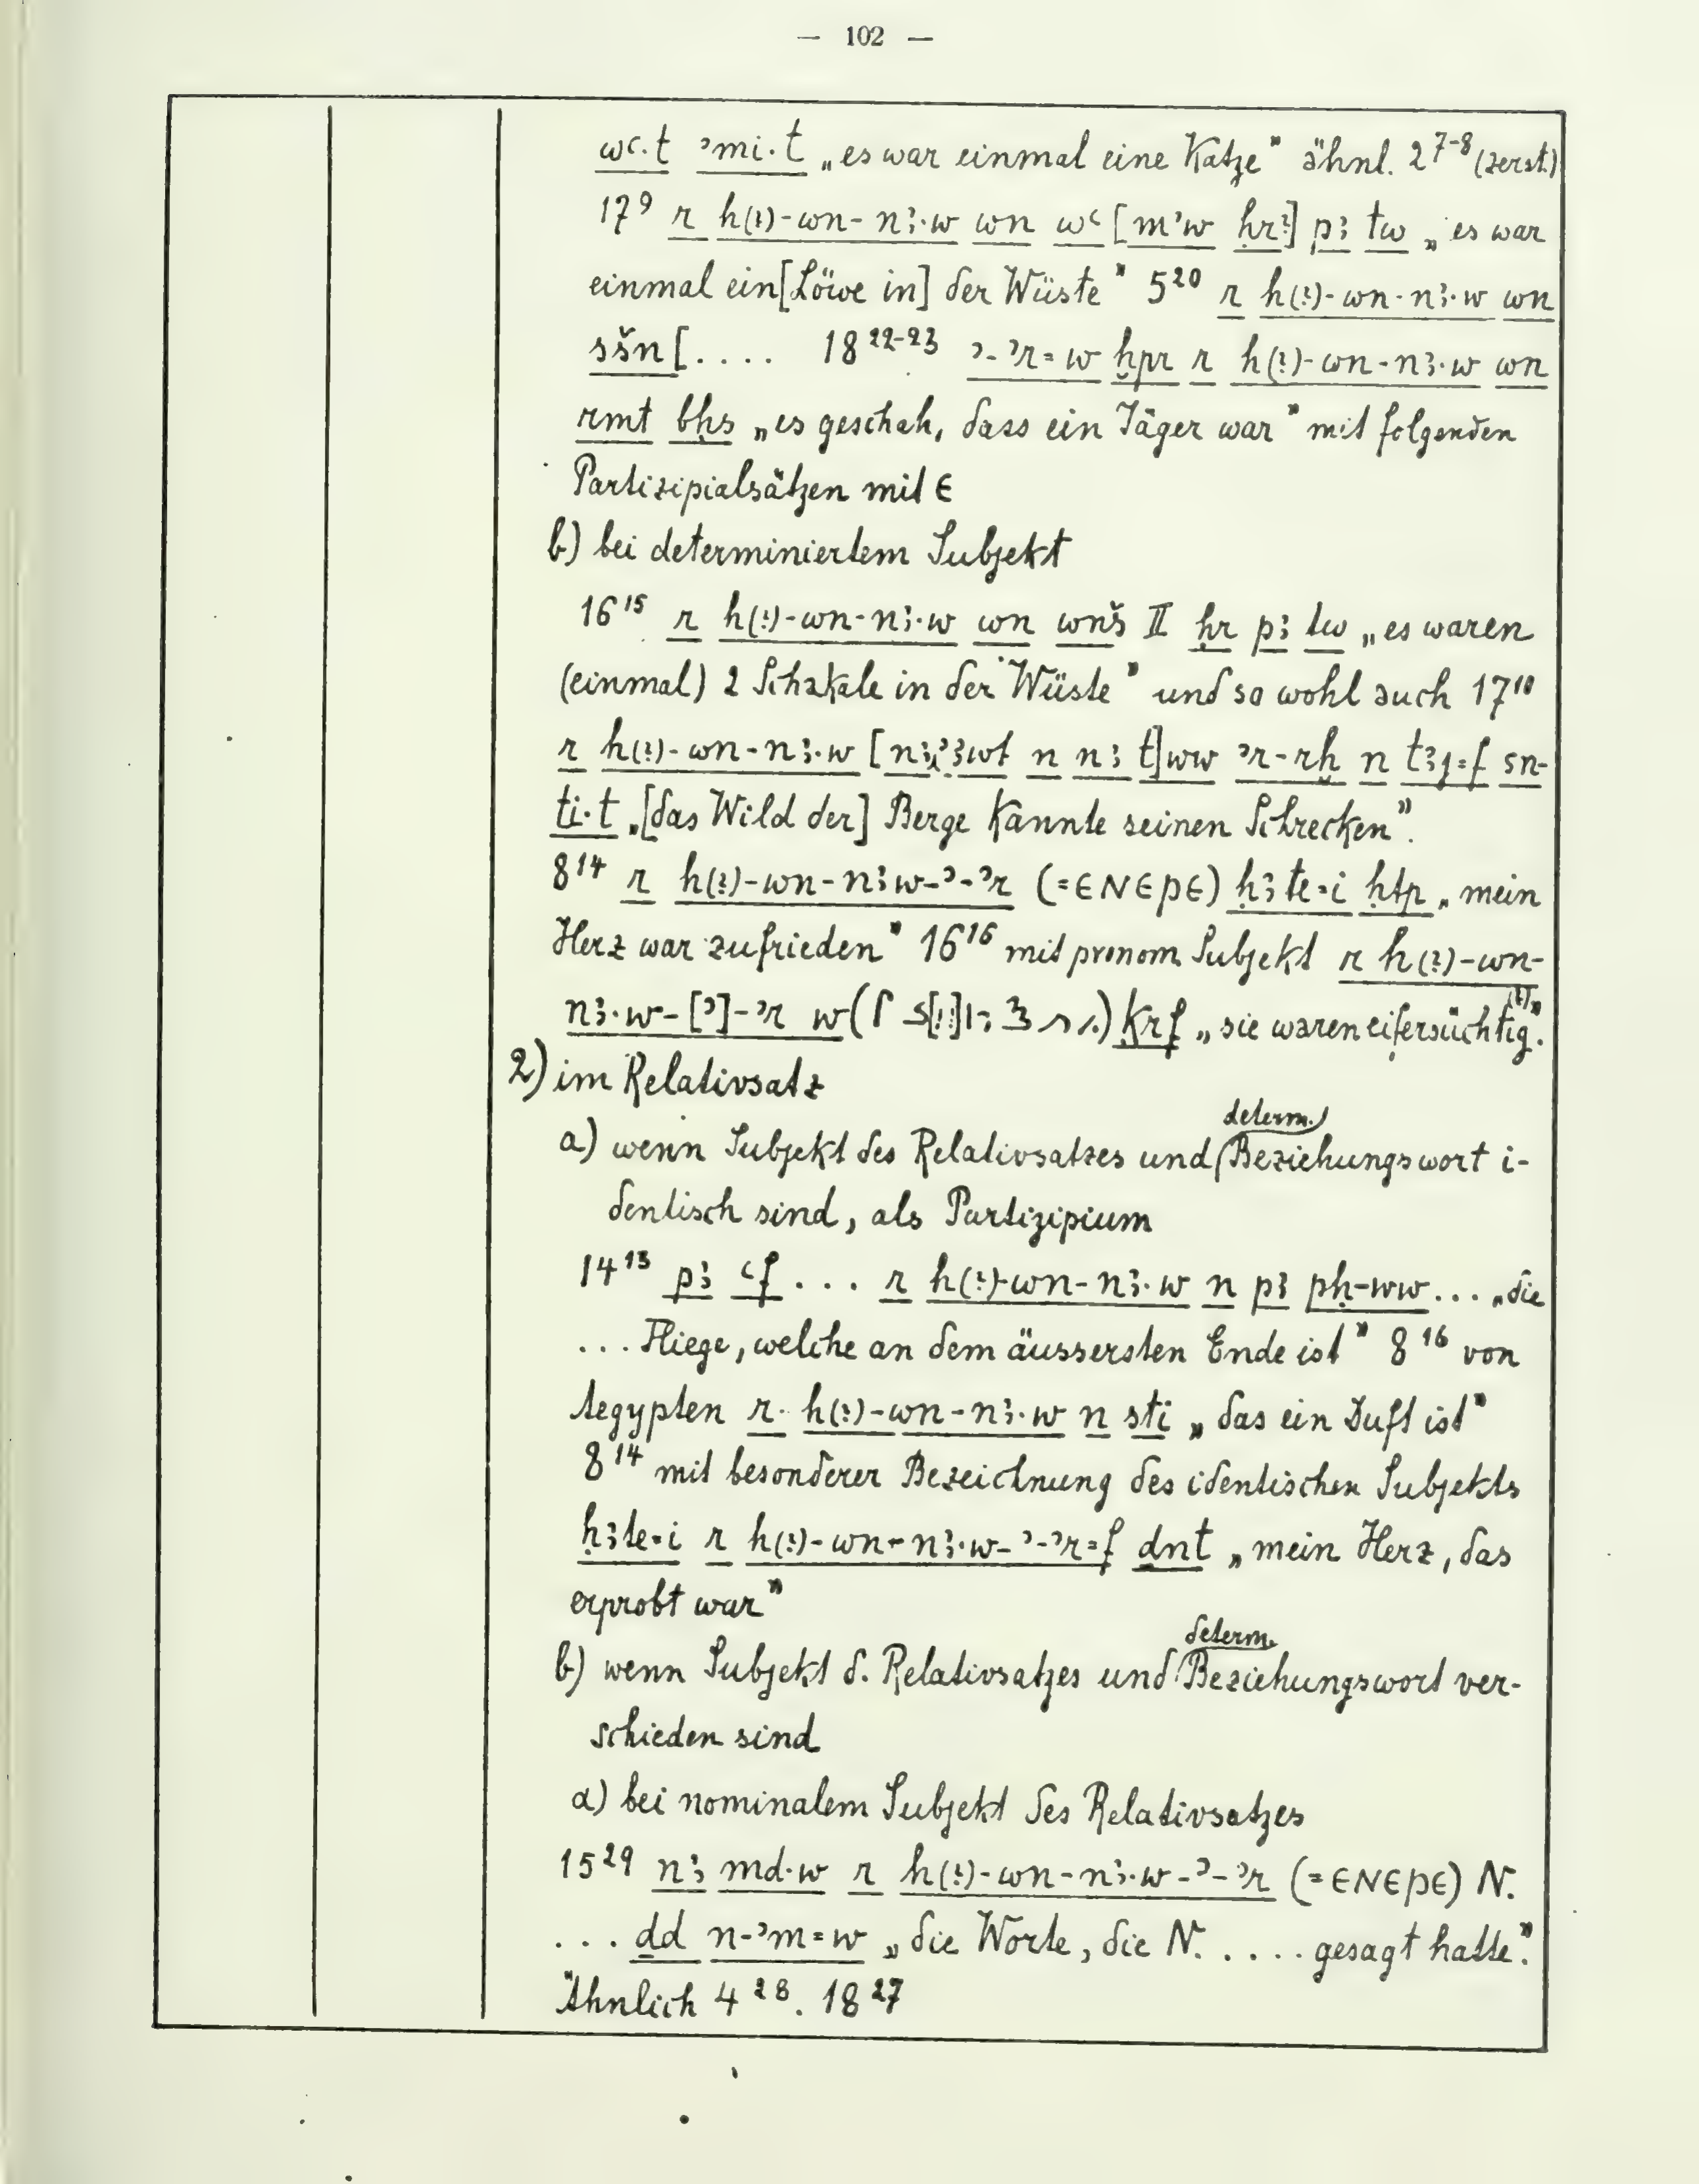 — 102 —
wꜥ.t ꜣmi.t „es war einmal eine Katze” ähnl. 2⁷⁻⁸ (zerst.)
17⁹ r h(?)-wn-nꜣ.w wn wꜥ [mꜣw ḥr?] pꜣ tw „es war
einmal ein [Löwe in] der Wüste” 5²⁰ r h(?)-wn-nꜣ.w wn
sšn [.... 18²²⁻²³ ʾ-ʾr=w ḫpr r h(?)-wn-nꜣ.w wn
rmt bḥs „es geschah, dass ein Jäger war” mit folgenden
Partizipialsätzen mit ⲉ
b) bei determiniertem Subjekt
16¹⁵ r h(?)-wn-nꜣ.w wn wnš II ḥr pꜣ tw „es waren
(einmal) 2 Schakale in der Wüste” und so wohl auch 17¹⁰
r h(?)-wn-nꜣ.w [nꜣ ꜣwt n nꜣ t]ww ʾr-rḫ n tꜣj=f sn-
ti.t „[das Wild der] Berge kannte seinen Schrecken”.
8¹⁴ r h(?)-wn-nꜣw-ʾ-ʾr (=ⲉⲛⲉⲣⲉ) ḥꜣte=i ḥtp „mein
Herz war zufrieden” 16¹⁶ mit pronom. Subjekt r h(?)-wn-
nꜣ.w-[ʾ]-ʾr w ḳrf „sie waren eifersüchtig(?)”.
2) im Relativsatz
a) wenn Subjekt des Relativsatzes und (determ.) Beziehungswort i-
dentisch sind, als Partizipium
14¹³ pꜣ ꜥf ... r h(?)-wn-nꜣ.w n pꜣ pḥ-ww ... „die
... Fliege, welche an dem äussersten Ende ist” 8¹⁶ von
Aegypten r h(?)-wn-nꜣ.w n sti „das ein Duft ist”
8¹⁴ mit besonderer Bezeichnung des identischen Subjekts
ḥꜣte=i r h(?)-wn-nꜣ.w-ʾ-ʾr=f dnt „mein Herz, das
erprobt war”
b) wenn Subjekt d. Relativsatzes und determ. Beziehungswort ver-
schieden sind
α) bei nominalem Subjekt des Relativsatzes
15²⁹ nꜣ md.w r h(?)-wn-nꜣ.w-ʾ-ʾr (=ⲉⲛⲉⲣⲉ) N.
... ḏd n-ʾm=w „die Worte, die N. .... gesagt hatte”.
Ähnlich 4²⁸. 18²⁷